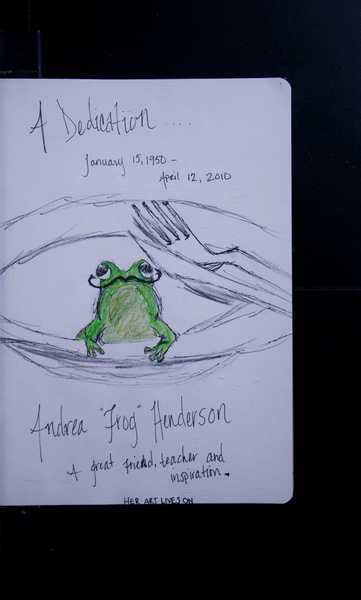 A Dedication ....
January 15, 1950 -
April 12, 2010
Andrea "Frog" Henderson
A great friend, teacher and
inspiration.
HER ART LIVES ON